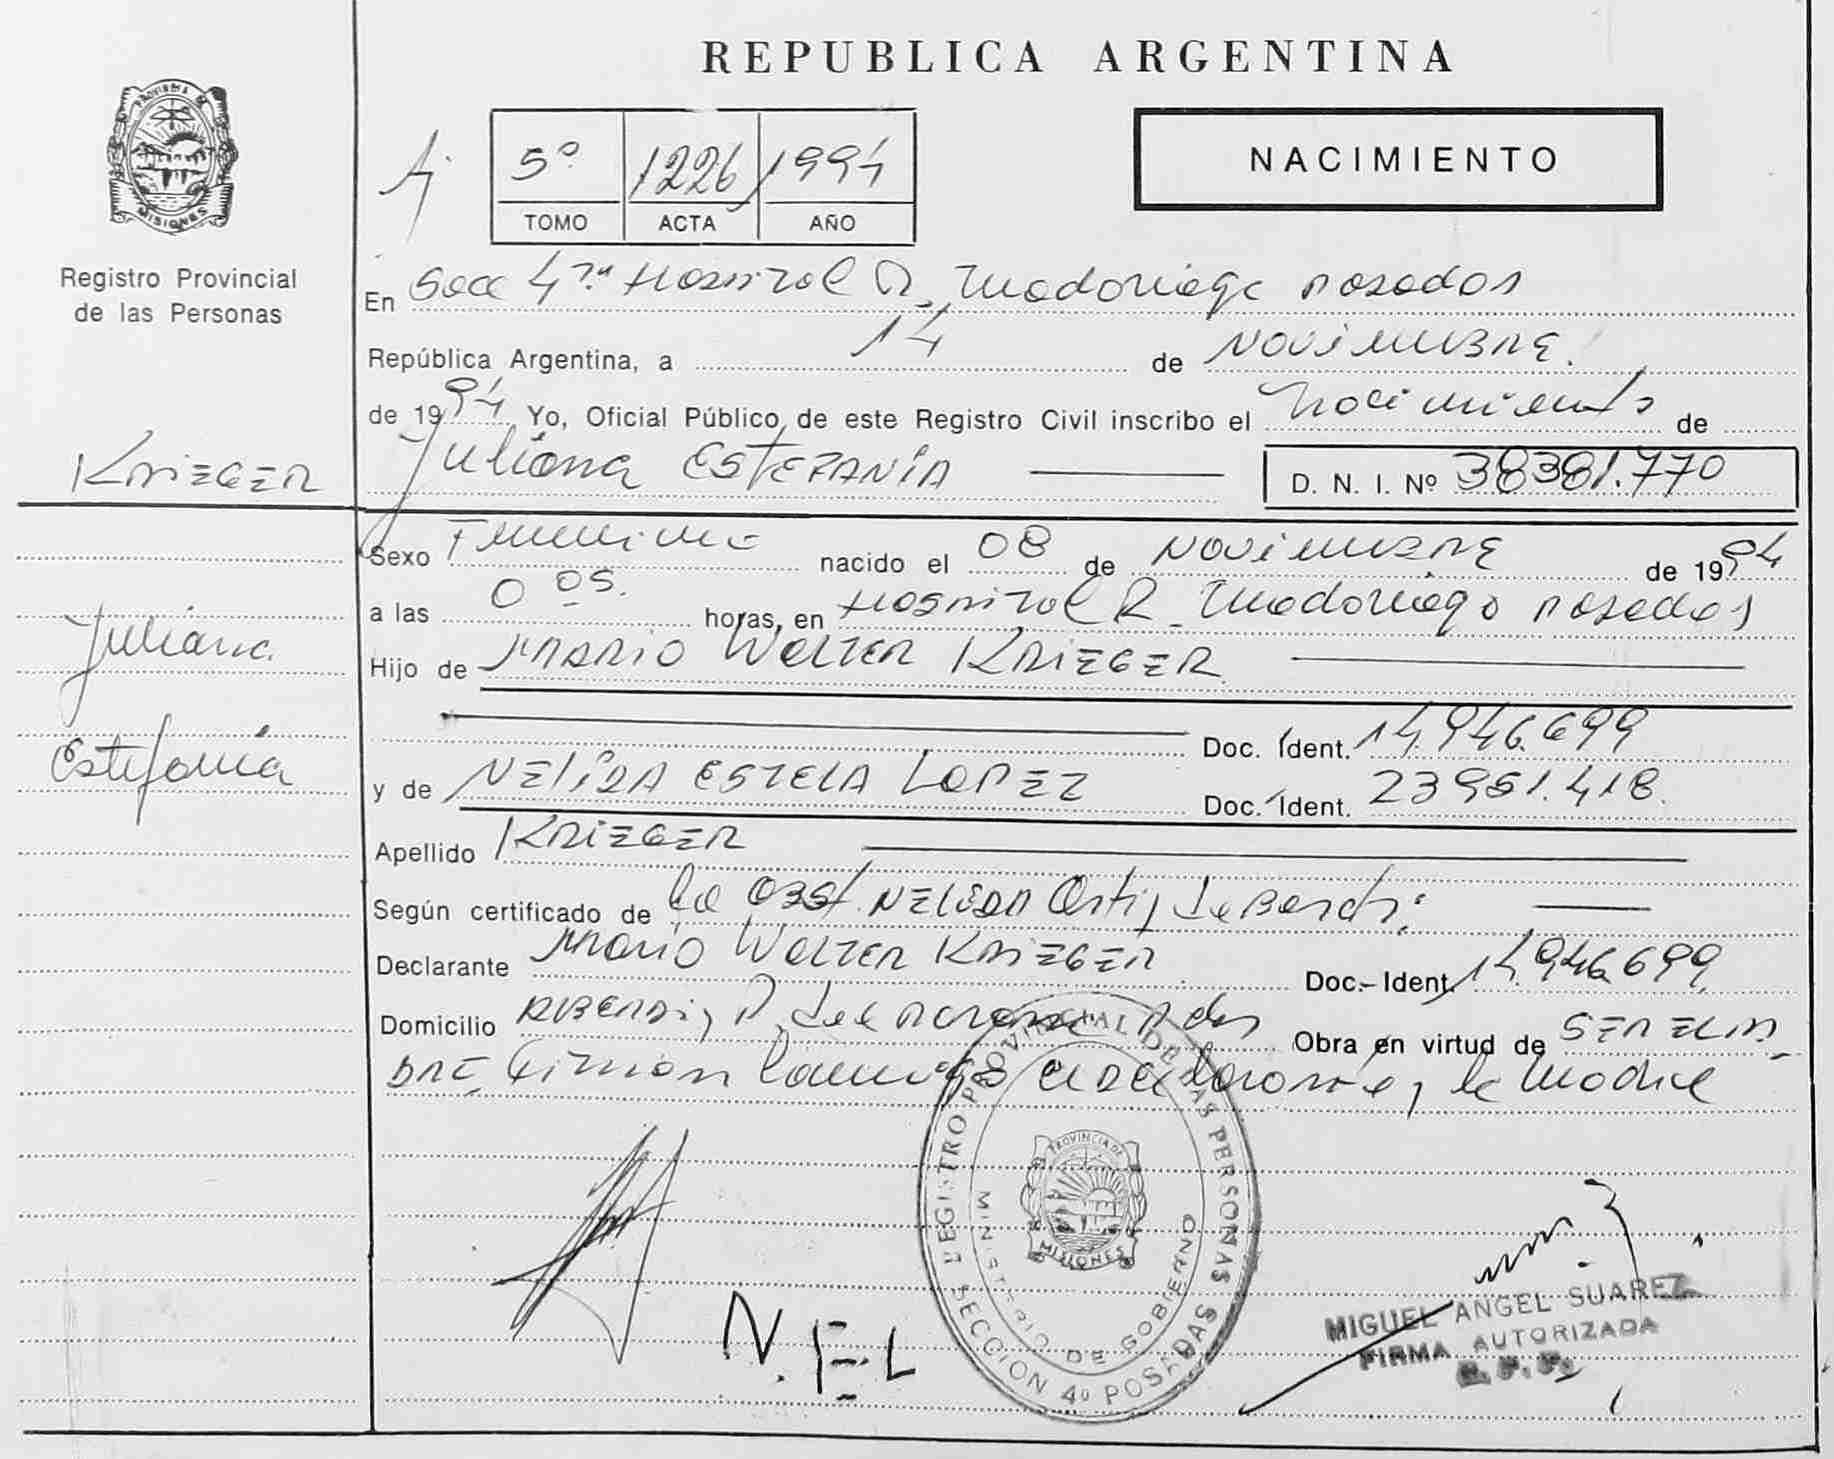 REPUBLICA ARGENTINA
PROVINCIA DE MISIONES
Registro Provincial
de las Personas
5º 1226 1994
TOMO ACTA AÑO
NACIMIENTO
En Secc 4ta Hospital R. Madariaga Posadas
República Argentina, a 14 de Noviembre
de 1994 Yo, Oficial Público de este Registro Civil inscribo el Nacimiento de
Juliana ESTEFANÍA D. N. I. Nº 38381.770
KRIEGER
Juliana
Estefanía
Sexo Femenino nacido el 08 de Noviembre de 1994
a las 0 05. horas, en Hospital R. Madariaga Posadas
Hijo de MARIO Walter KRIEGER
Doc. Ident. 14.946.699
y de NELIDA ESTELA LOPEZ Doc. Ident. 23951.418.
Apellido KRIEGER
Según certificado de la Obst. NELIDA Ortiz de
Declarante Mario Walter KRIEGER Doc.- Ident. 14.946.699
Domicilio Obra en virtud de SER EL PA-
DRE Firman conmigo el declarante y la Madre
REGISTRO PROVINCIAL DE LAS PERSONAS
SECCION 4º POSADAS
MINISTERIO DE GOBIERNO
PROVINCIA DE MISIONES
N. E. L
MIGUEL ANGEL SUAREZ
FIRMA AUTORIZADA
R. P. P.